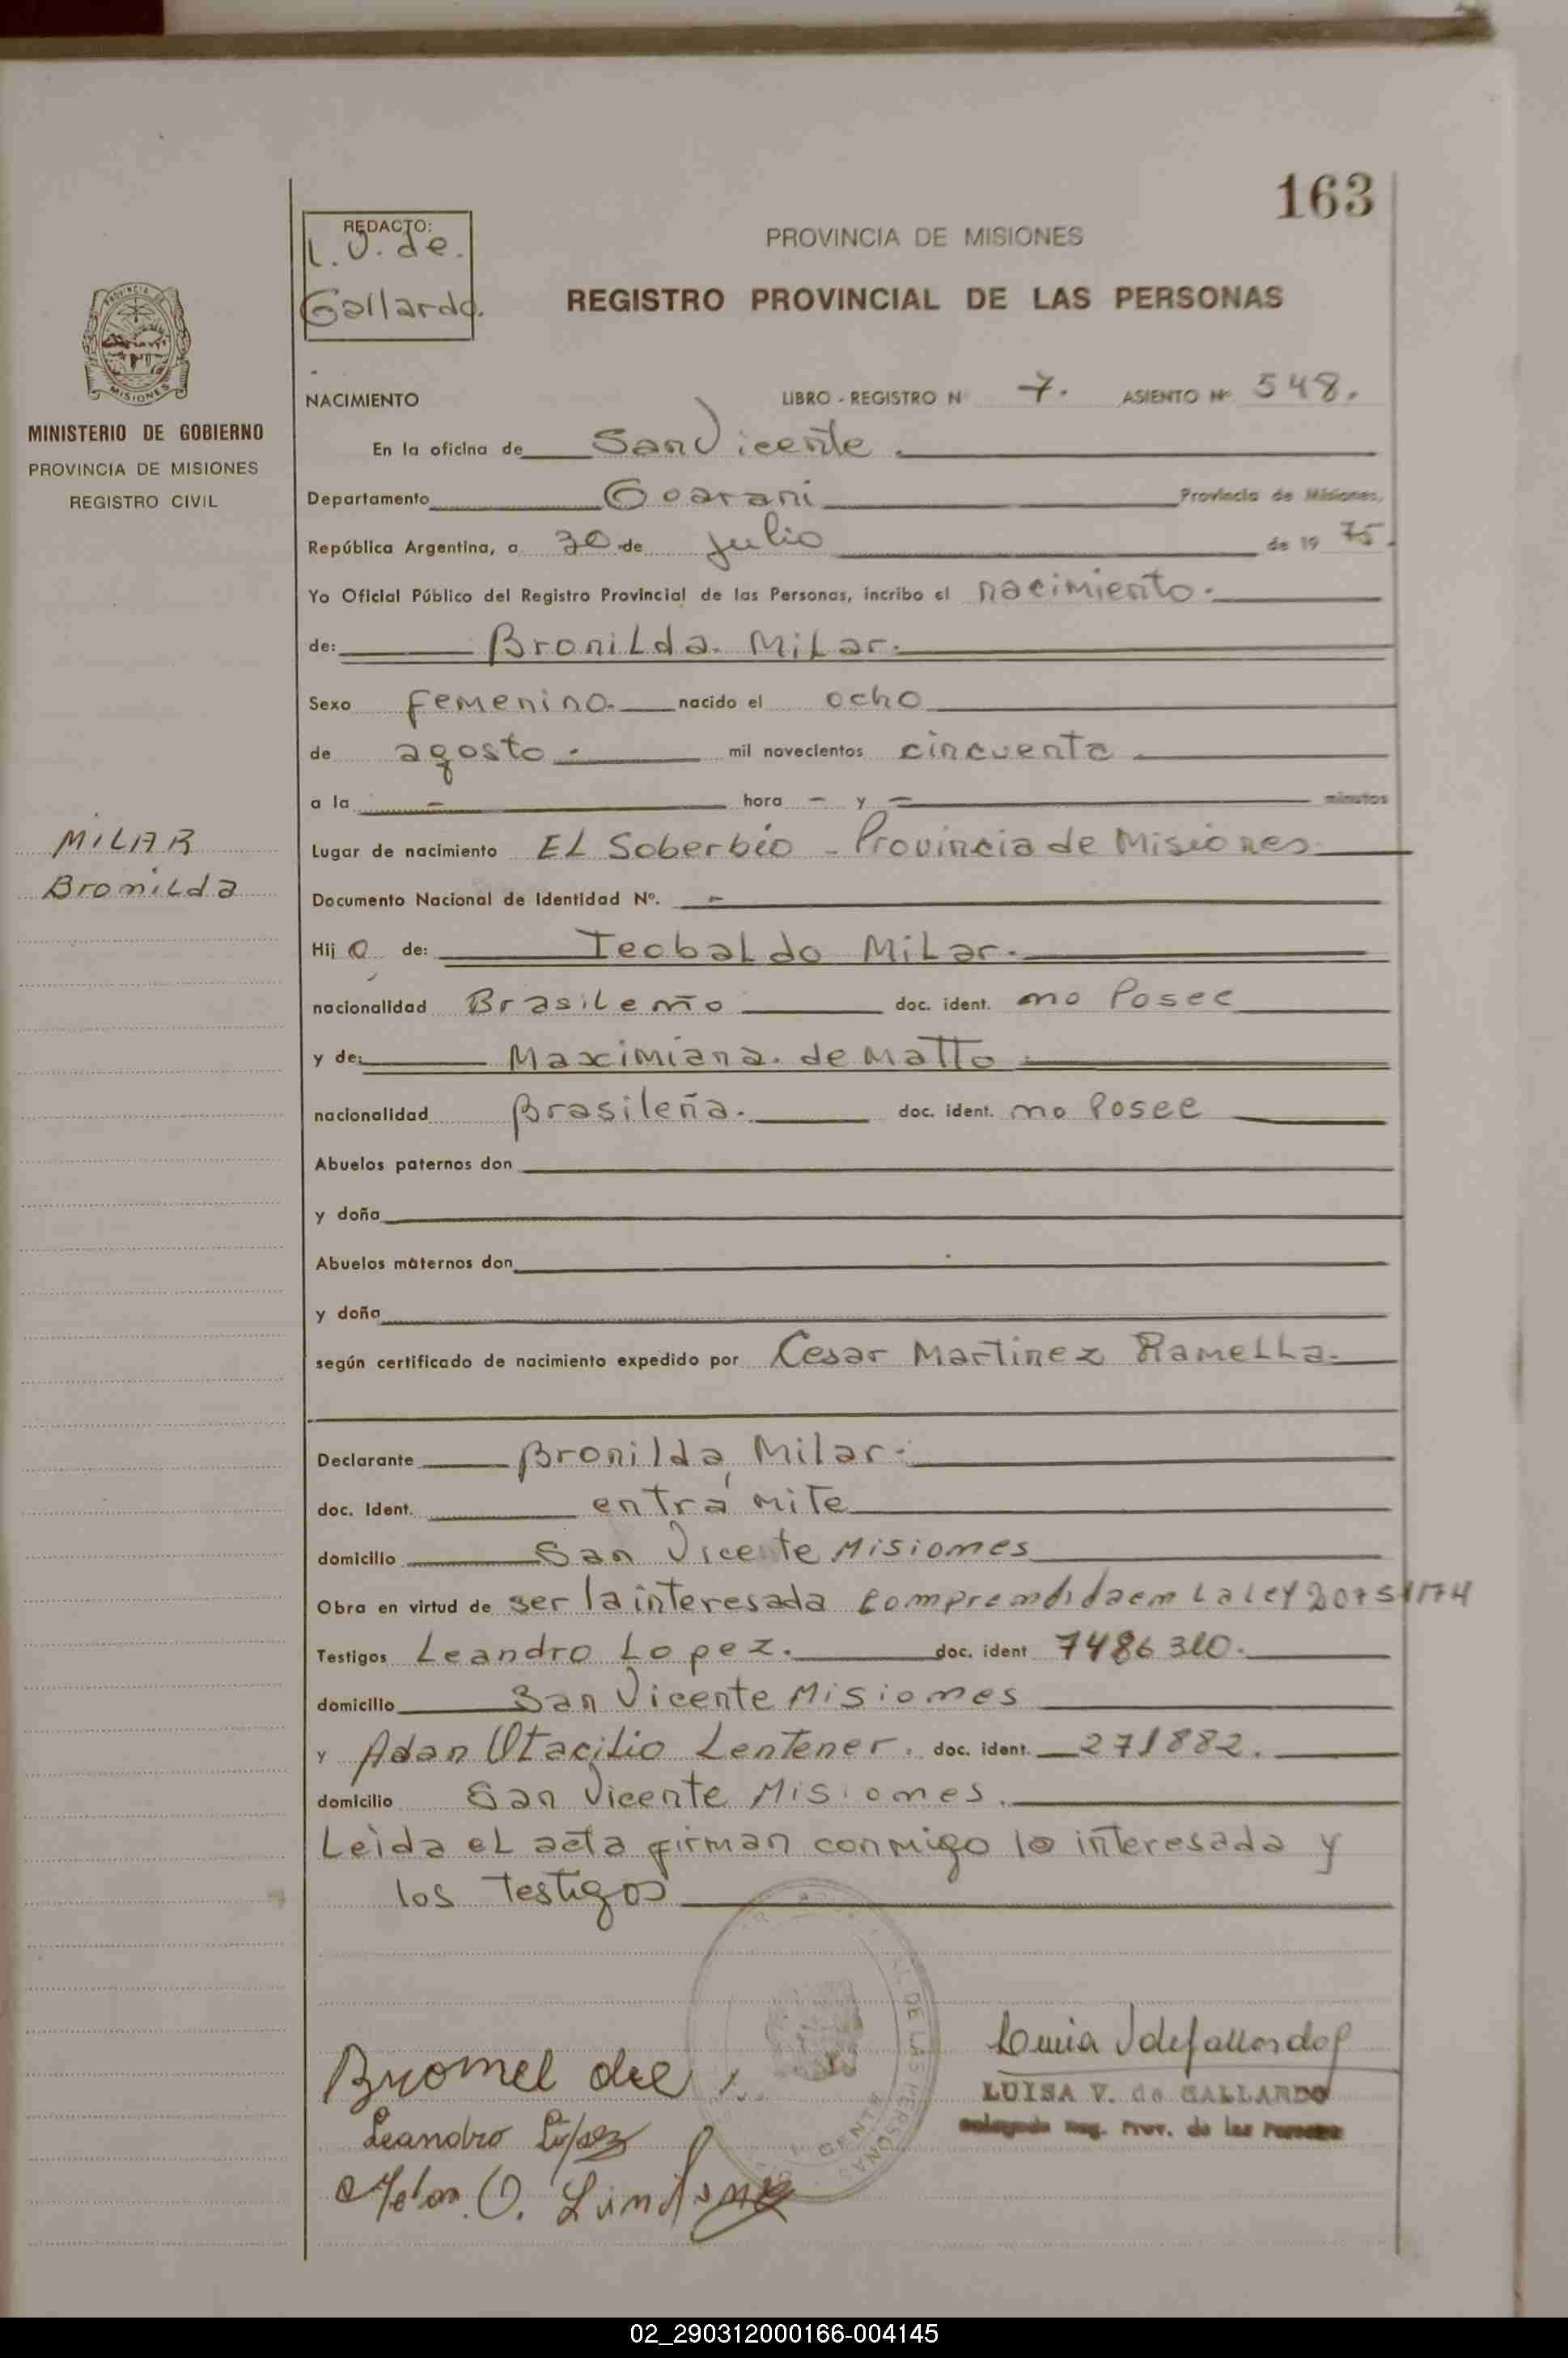 163
REDACTO:
L.V. de.
Gallardo.
PROVINCIA DE MISIONES
REGISTRO PROVINCIAL DE LAS PERSONAS
PROVINCIA DE
MISIONES
MINISTERIO DE GOBIERNO
PROVINCIA DE MISIONES
REGISTRO CIVIL
NACIMIENTO LIBRO - REGISTRO N 7. ASIENTO Nº 548.
En la oficina de San Vicente
Departamento Goarani Provincia de Misiones,
República Argentina, a 30 de Julio de 19 75.
Yo Oficial Público del Registro Provincial de las Personas, incribo el nacimiento.
de: Bronilda Milar.
Sexo femenino. nacido el ocho
de agosto. mil novecientos cincuenta
a la - hora - y = minutos
MILAR
Bronilda
Lugar de nacimiento El Soberbio - Provincia de Misiones
Documento Nacional de Identidad Nº. -
Hij a de: Teobaldo Milar.
nacionalidad Brasileño doc. ident. no Posee
y de: Maximiana. de Matto
nacionalidad Brasileña. doc. ident. no Posee
Abuelos paternos don
y doña
Abuelos maternos don
y doña
según certificado de nacimiento expedido por Cesar Martinez Ramella.
Declarante Bronilda Milar.
doc. Ident. entrámite
domicilio San Vicente Misiones
Obra en virtud de ser la interesada comprendida en La Ley 20751/74
Testigos Leandro Lopez. doc. ident 7486310.
domicilio San Vicente Misiones
y Adan Otacilio Lentener. doc. ident. 271882.
domicilio San Vicente Misiones.
Leida el acta firman conmigo la interesada y
los testigos
DE LAS PERSONAS
Leandro López
LUISA V. de GALLARDO
Delegada Reg. Prov. de las Personas
02_290312000166-004145